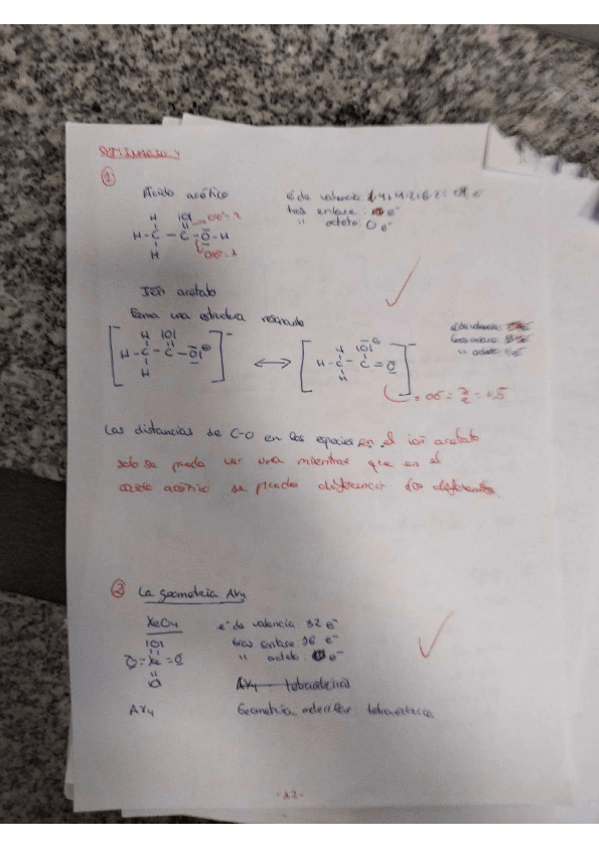 ①
Ácido acético
é de valencia:
tras enlace: e⁻
" octeto: 0 e⁻
H |O|
H - C - C - O - H
H
Ión acetato
forma una estructura resonante
H |O|
H - C - C - O|⊖
H
⟷
H |O|⊖
H - C - C = O
H
é de valencia:
tras enlace:
" octeto:
Las distancias de C-O en las especies en el ión acetato
solo se puede ver una mientras que en el
ácido acético se pueden diferenciar dos diferentes
② La geometría AX₄
XeO₄
e⁻ de valencia: 32 e⁻
tras enlace: e⁻
" octeto: e⁻
|O|
O = Xe = O
O
AX₄ tetraédrica
AX₄
Geometría molecular: tetraédrica
-12-